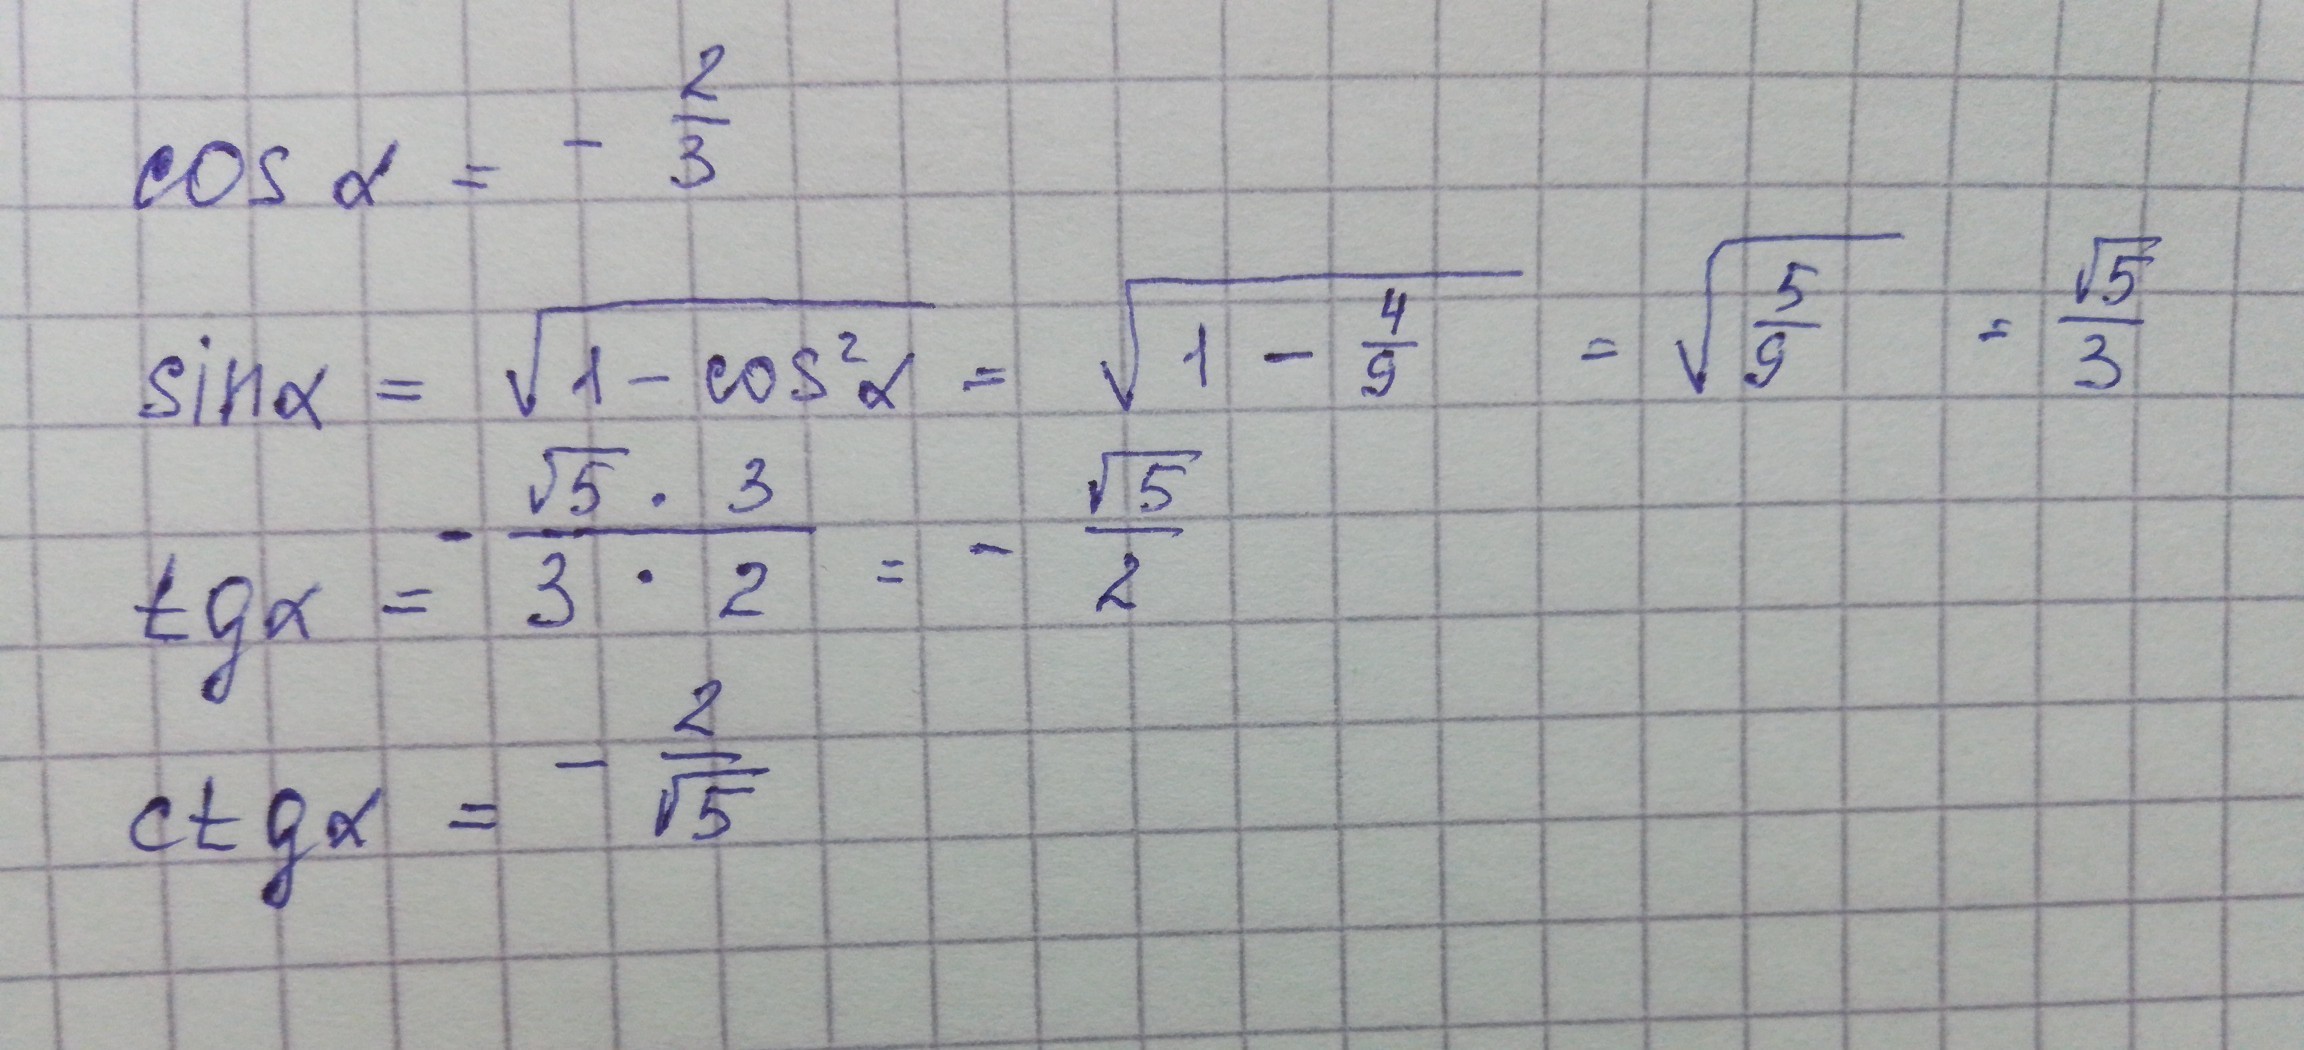 cos α = - 2/3
sin α = √(1 - cos²α) = √(1 - 4/9) = √(5/9) = √5/3
tg α = - (√5 · 3)/(3 · 2) = - √5/2
ctg α = - 2/√5